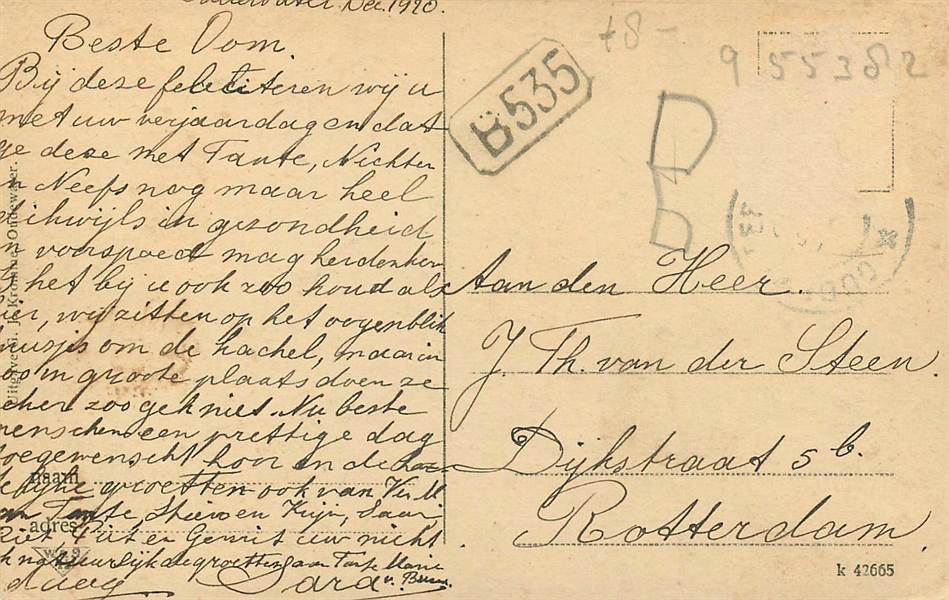 Dec. 1920.
Beste Oom.
Bij deze feliciteren wij u
met uw verjaardag en dat
ge deze met Tante, Nichten
en Neefs nog maar heel
dikwijls in gezondheid
en voorspoed mag herdenken
het bij u ook zoo koud als
hier, wij zitten op het oogenblik
om de kachel, maar in
zoo'n groote plaats doen ze
zeker zoo gek niet. Nu beste
menschen een prettige dag
toegewenscht hoor en de har-
telijke groetten ook van
Tante
Piet
natuurlijk de groetten aan Tante Marie
daag Sara v.
Uitgave H. J. Kromme, Oudewater.
naam
adres
B535
48-
9 55382
GOUDA
Aan den Heer.
J. Th. van der Steen.
Dijkstraat 5 b.
Rotterdam.
k 42665